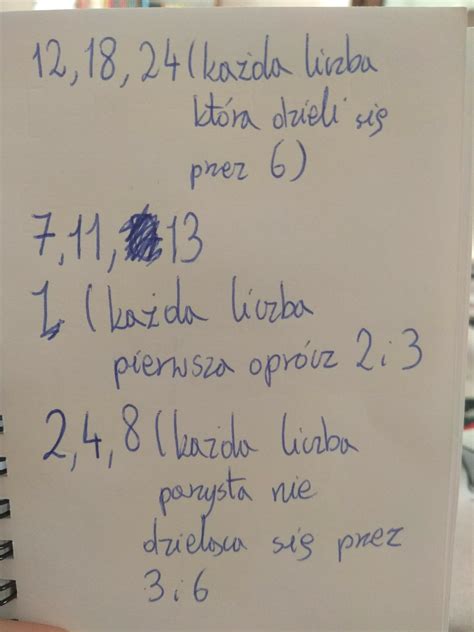 12, 18, 24 (każda liczba
która dzieli się
przez 6)
7, 11, 13
1 (każda liczba
pierwsza oprócz 2 i 3
2, 4, 8 (każda liczba
parzysta nie
dzieląca się przez
3 i 6